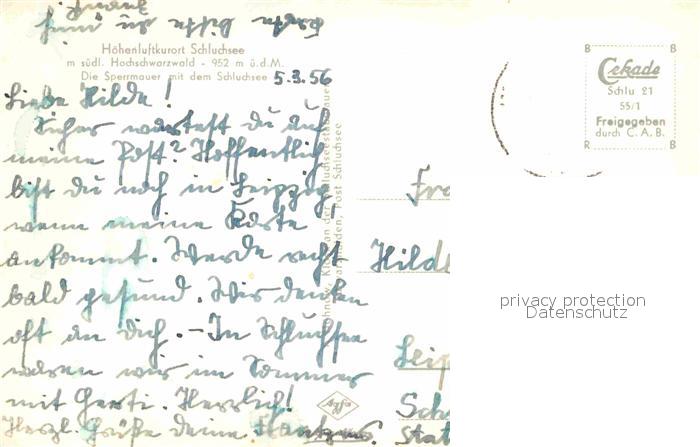 Karte bitte an
Höhenluftkurort Schluchsee
m südl. Hochschwarzwald - 952 m ü.d.M.
Die Sperrmauer mit dem Schluchsee
5.3.56
Liebe Hilde!
Sicher wartest du auf
meine Post? Hoffentlich
bist du noch in Leipzig,
wenn meine Karte
ankommt. Werde recht
bald gesund. Wir denken
oft an dich. - In Schluchsee
waren wir im Sommer
mit Gerti. Herrlich!
Herzl. Grüße deine
Post Schluchsee
Agfa
B B
Cekade
Schlu 21
55/1
Freigegeben
durch C. A. B.
R B
Fra
Hild
Leip
Sch
Stat
privacy protection
Datenschutz